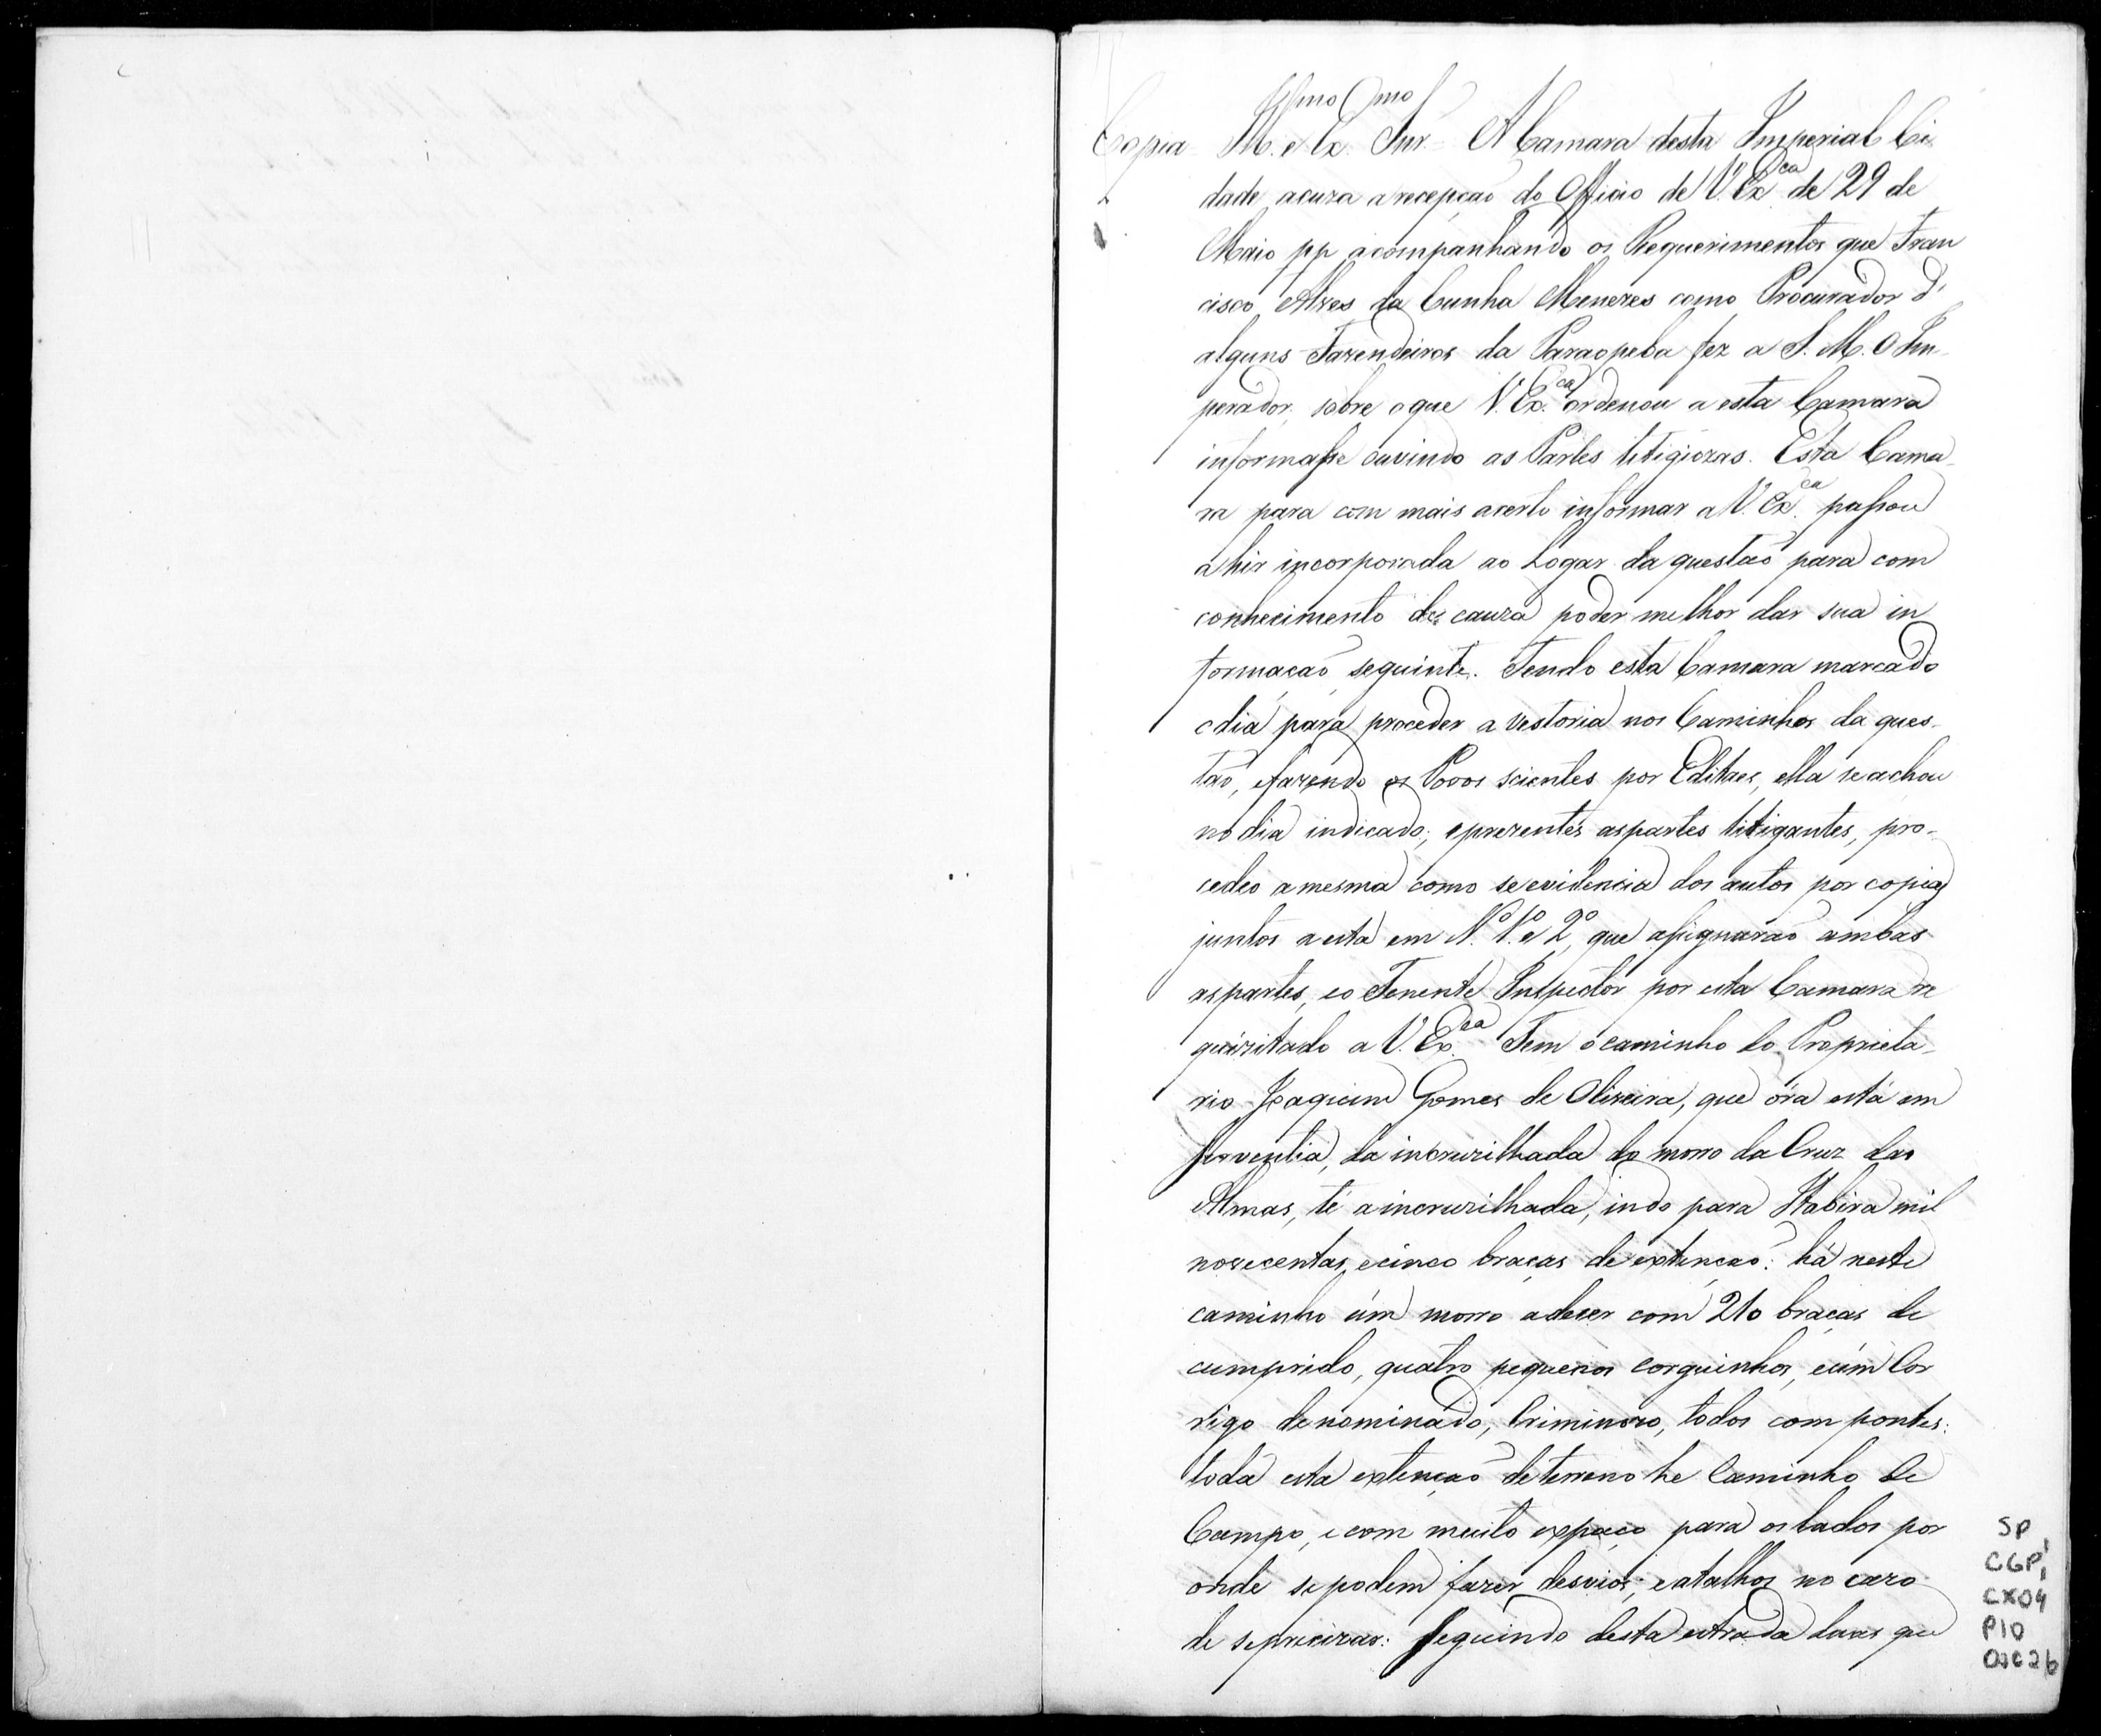 Copia Illmo e Exmo Snr. A Camara desta Imperial Ci
dade acuza a recepção do Officio de V. Exca de 29 de
Maio pp acompanhando os Requerimentos que Fran
cisco Alves da Cunha Menezes como Procurador d'
alguns Fazendeiros da Paraopeba fez a S. M. O Im-
perador, sobre o que V. Exca ordenou a esta Camara
informasse ouvindo as Partes litigiozas. Esta Cama-
ra para com mais acerto informar a V. Exca passou
a hir incorporada ao Logar da questão para com
conhecimento de cauza poder melhor dar sua in
formação seguinte. Tendo esta Camara marcado
o dia para proceder a vestoria nos Caminhos da ques-
tão, e fazendo os Povos scientes por Editaes, ella se achou
no dia indicado; e prezentes as partes litigantes, pro-
cedeo a mesma como se evidencia dos autos por copia
juntos a esta em N.º 1º e 2º, que assignarão ambas
as partes, e o Tenente Inspector por esta Camara re
quizitado a V. Exca Tem o caminho do Proprieta-
rio Joaquim Gomes de Oliveira, que óra está em
serventia, da incruzilhada do morro da Cruz das
Almas, té a incruzilhada, indo para Itabira mil
novecentas e cinco braças de extenção: há neste
caminho úm morro a decer com 210 braças de
cumprido, quatro pequenos corguinhos, e úm Cor
rigo denominado, Criminozo, todos com pontes:
toda esta extenção de terreno he Caminho de
Campo, e com muito espaço para os lados por
onde se podem fazer desvios, e atalhos no cazo
de se precizar: Seguindo desta estrada duas que
SP
CGP1
CX04
P10